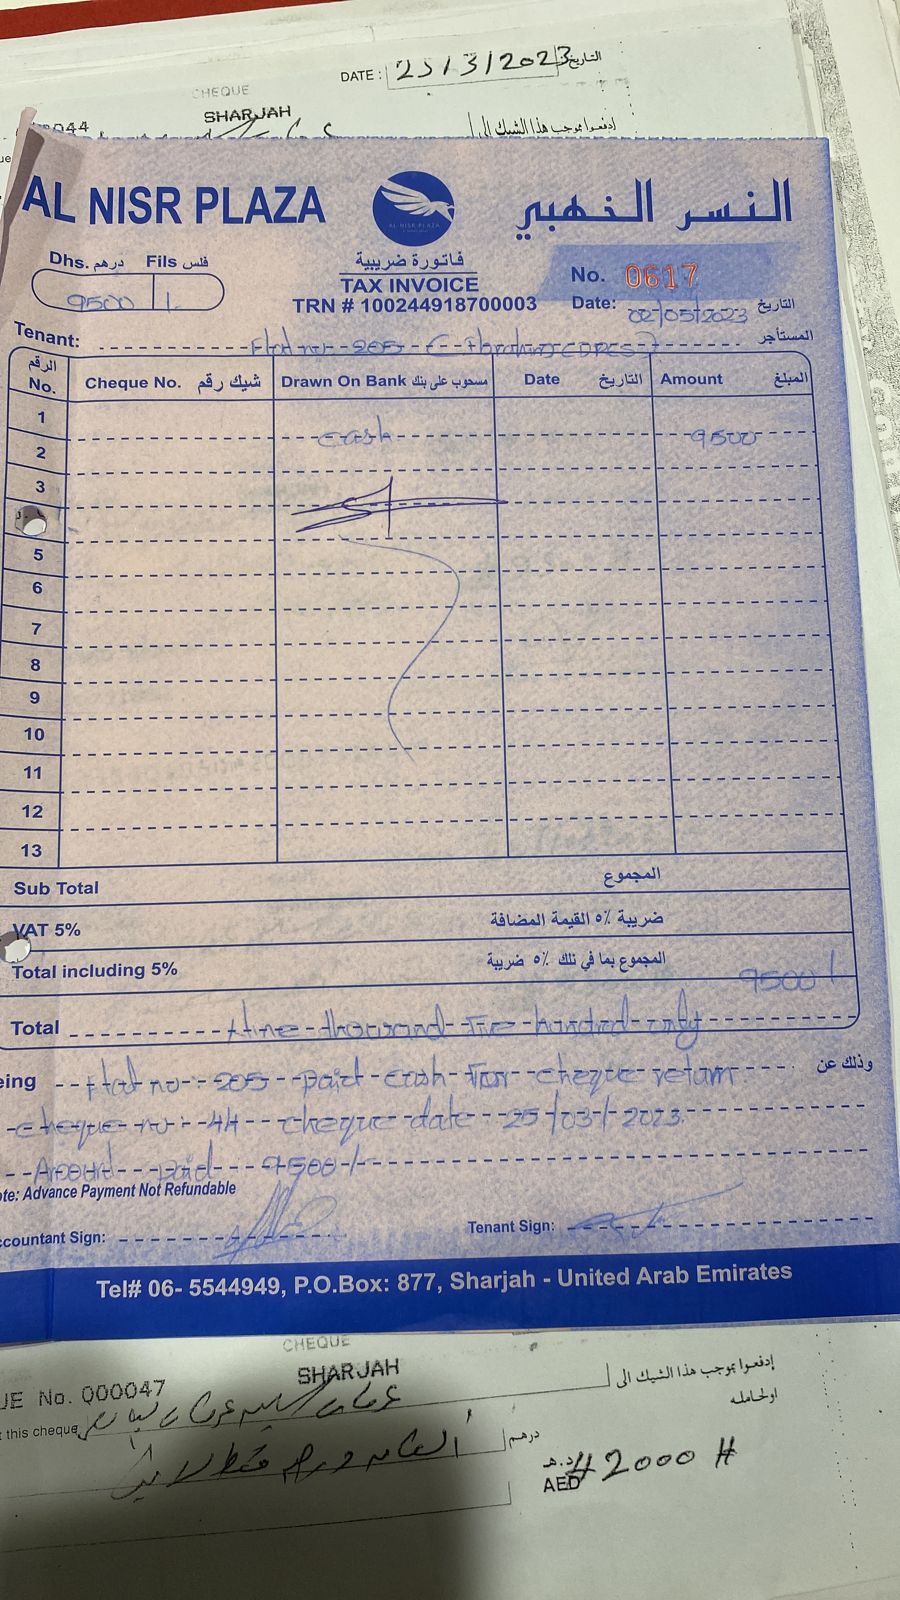 DATE : 25/3/2023 التاريخ
CHEQUE
SHARJAH
044
إدفعوا بموجب هذا الشيك إلى
AL NISR PLAZA
AL NISR PLAZA
النسر الذهبي
Dhs. درهم Fils فلس
9500 /.
فاتورة ضريبية
TAX INVOICE
TRN # 100244918700003
No. 0617
Date: 02/05/2023 التاريخ
Tenant: Flat no 205 المستأجر
الرقم No. Cheque No. شيك رقم Drawn On Bank مسحوب على بنك Date التاريخ Amount المبلغ
1
2 cash 9500
3
5
6
7
8
9
10
11
12
13
Sub Total المجموع
VAT 5% ضريبة ٥٪ القيمة المضافة
Total including 5% المجموع بما في تلك ٥٪ ضريبة
9500 /.
Total Nine thousand Five hundred only
eing Flat no 205 paid cash For cheque return وذلك عن
cheque no 44 cheque date 25/03/2023.
Amount paid 9500/-
ote: Advance Payment Not Refundable
ccountant Sign:
Tenant Sign:
Tel# 06- 5544949, P.O.Box: 877, Sharjah - United Arab Emirates
CHEQUE
SHARJAH
UE No. 000047
إدفعوا بموجب هذا الشيك الى
اولحامله
t this cheque
درهم
فقط لا غير
د.هـ
AED # 2000 #